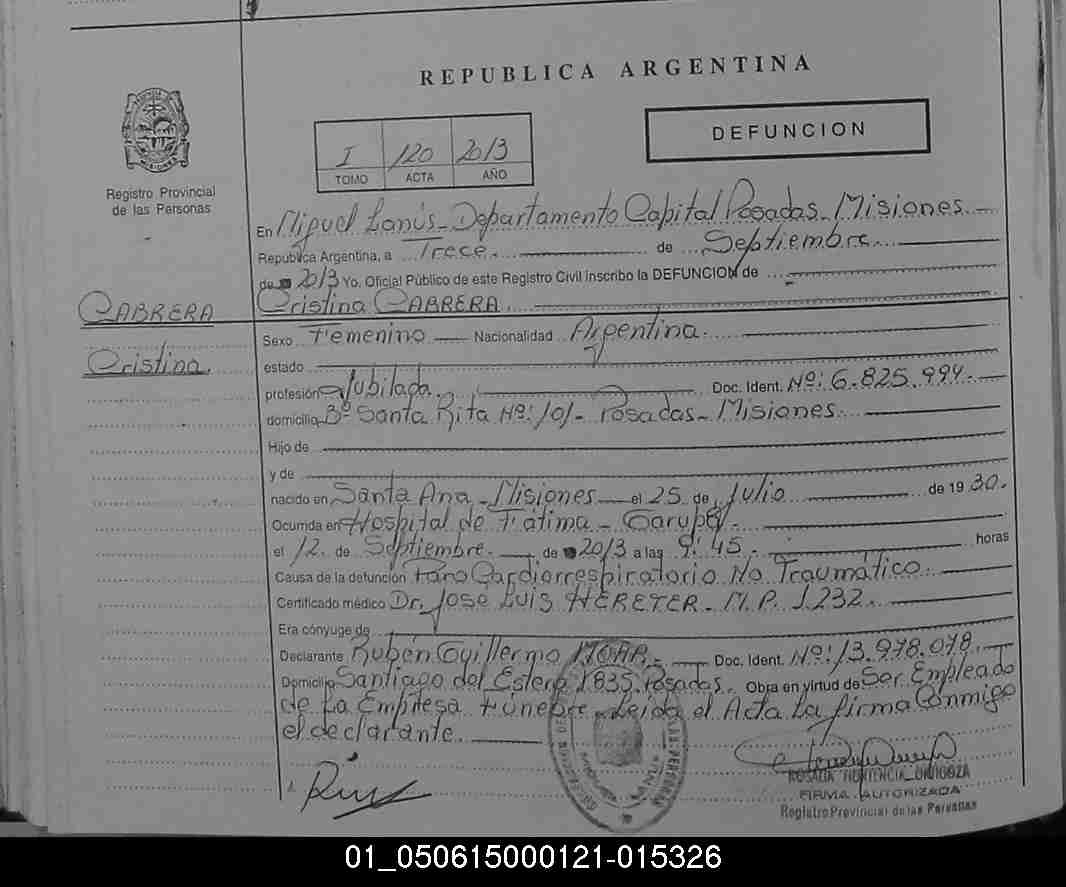 REPUBLICA ARGENTINA
DEFUNCION
I 120 2013
TOMO ACTA AÑO
Registro Provincial
de las Personas
En Miguel Lanús - Departamento Capital Posadas - Misiones
Republica Argentina, a Trece. de Septiembre
de 2013 Yo. Oficial Público de este Registro Civil inscribo la DEFUNCION de
CABRERA
Cristina CABRERA.
Sexo Femenino Nacionalidad Argentina.
Cristina.
estado
profesión Jubilada. Doc. Ident. Nº: 6.825.994.
domicilio Bº Santa Rita Nº: 101 - Posadas - Misiones
Hijo de
y de
nacido en Santa Ana - Misiones el 25 de Julio de 19 30.
Ocurrida en Hospital de Fátima - Garupá.
el 12 de Septiembre. de 2013 a las 9:45. horas
Causa de la defunción Paro Cardiorrespiratorio No Traumático.
Certificado médico Dr. José Luis HERETER - M.P. 1232.
Era cónyuge de
Declarante Rubén Guillermo Doc. Ident. Nº: 13.978.078.
Domicilio Santiago del Estero 1835. Posadas. Obra en virtud de Ser Empleado
de La Empresa Fúnebre. Leida el Acta La firma Conmigo
el declarante.
FIRMA AUTORIZADA
Registro Provincial de las Personas
01_050615000121-015326